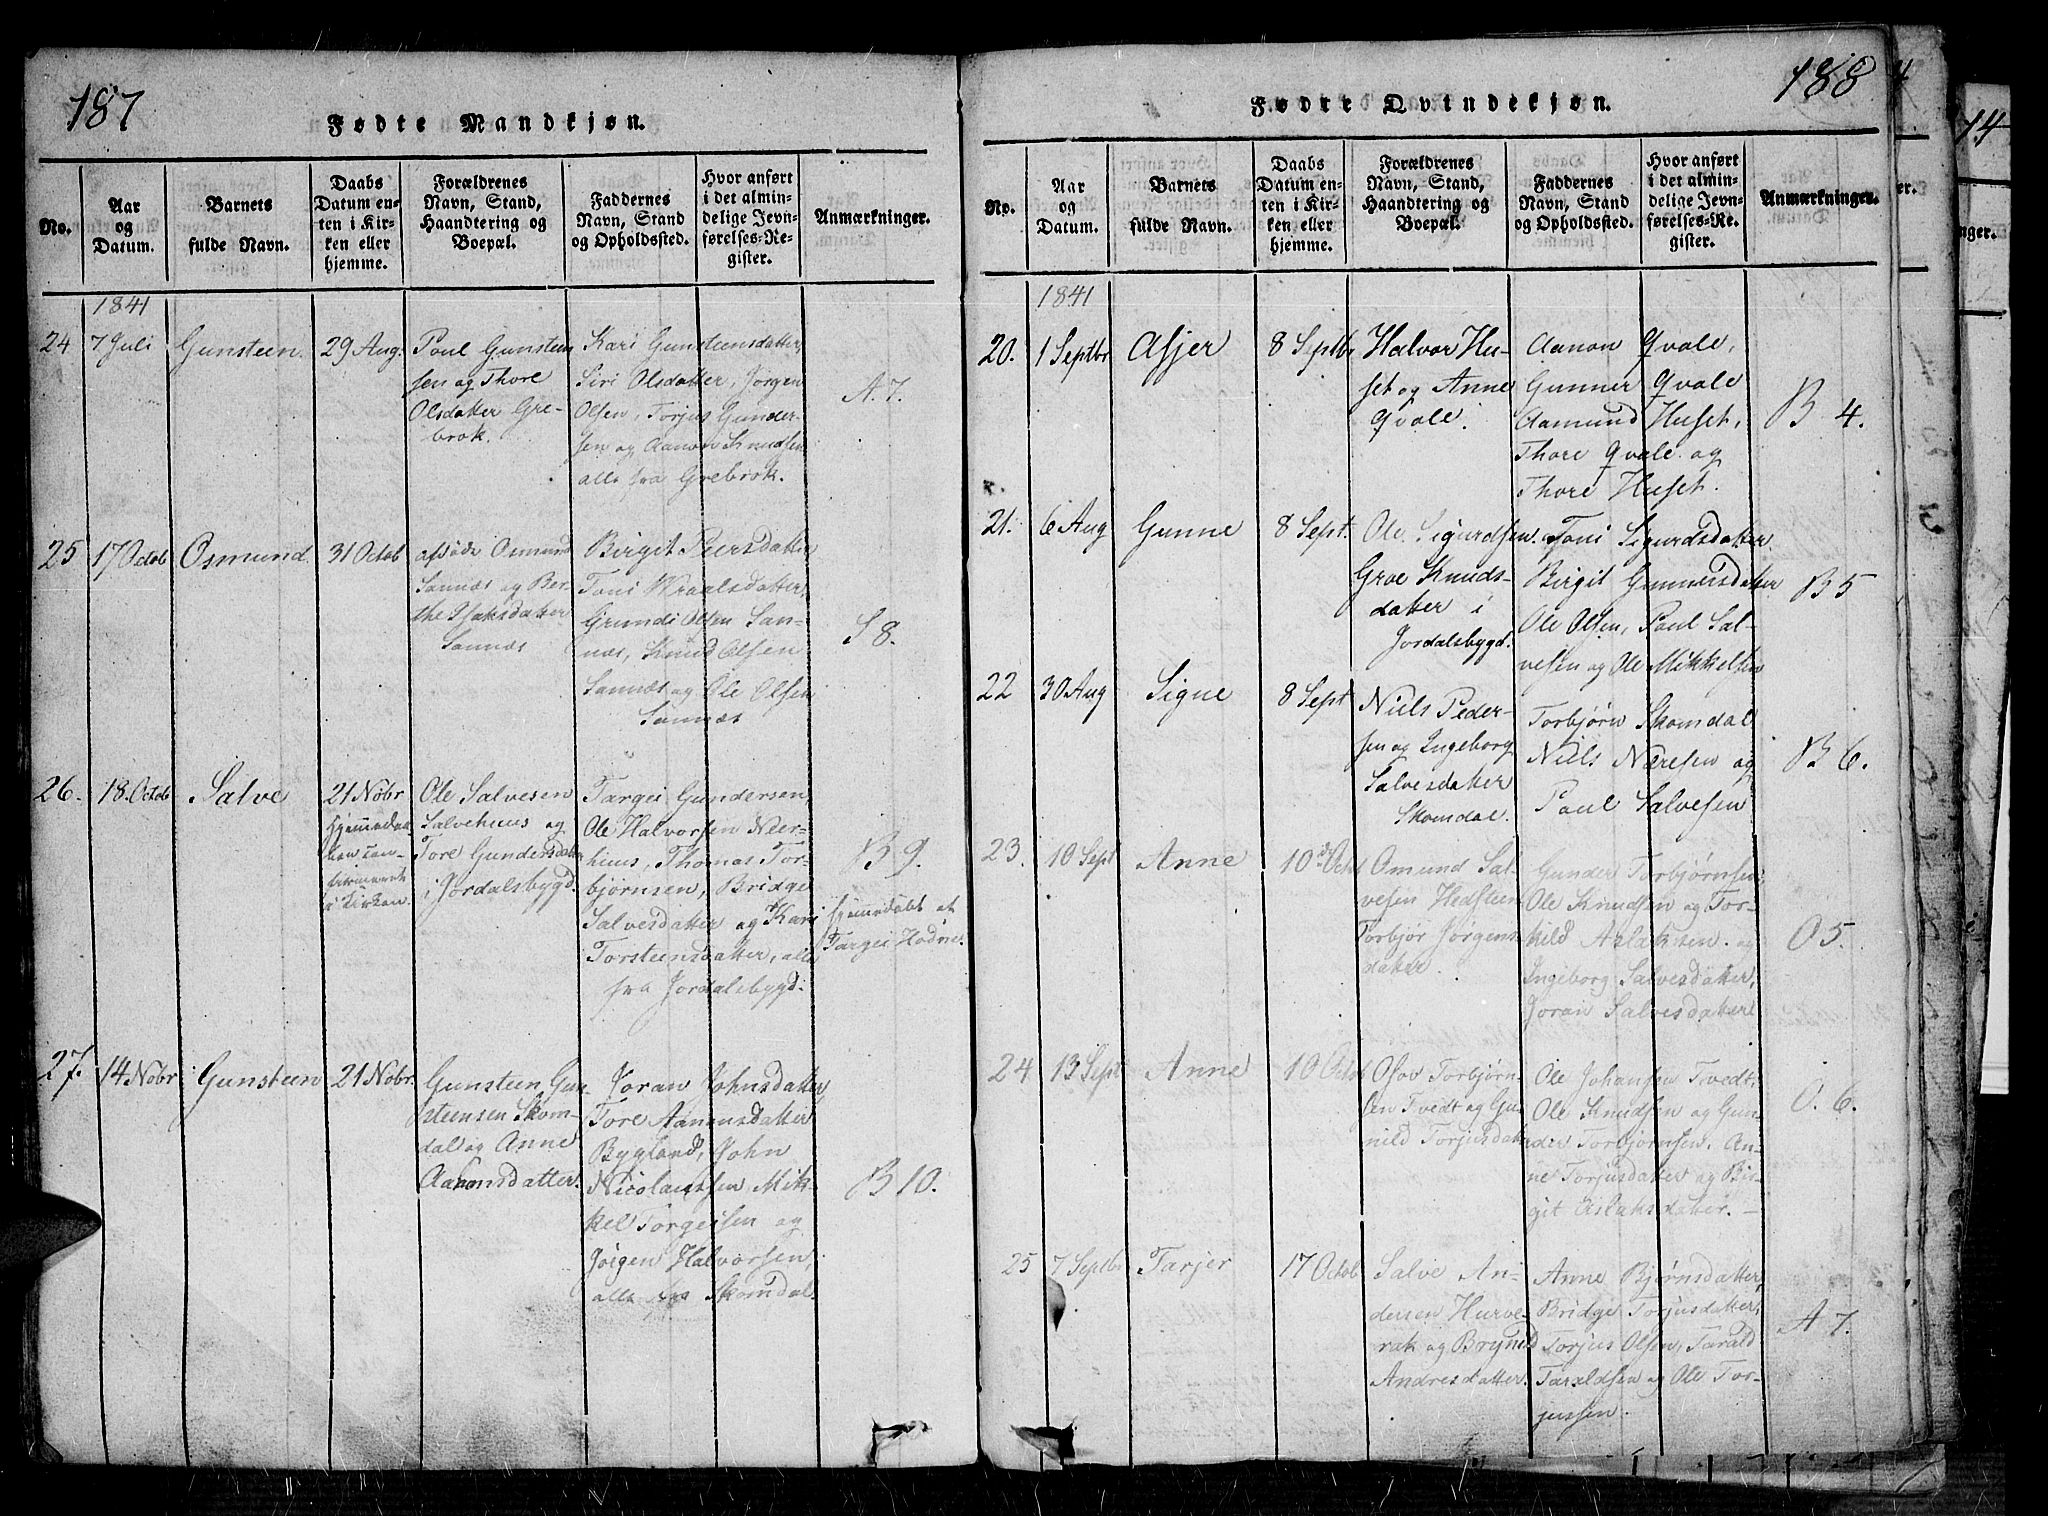 187
Fødte Mandkjøn.
No.
Aar
og
Datum.
Barnets
fulde Navn.
Daabs
Datum en-
ten i Kir-
ken eller
hjemme.
Forældrenes
Navn, Stand,
Haandtering og
Boepæl.
Faddernes
Navn, Stand
og Opholdssted.
Hvor anført
i det almin-
delige Jevn-
førelses-Re-
gister.
Anmærkninger.
1841
24
7 Juli
Gunsteen
29 Aug:
Poul Gunsteen
sen og Thore
Olsdatter Gre-
brok.
Kari Gunsteensdatter,
Siri Olsdatter, Jørgen
Olsen, Torjus Gunder-
sen og Aanon Knudsen
alle fra Grebrok.
A. 7.
25
17 Octob
Osmund
31 Octob
afdøde Osmund
Sannæs og Ber-
the Isaksdatter
Sannæs
Birgit Peersdatter
Toni Wraalsdatter,
Grundi Olsen San-
næs, Knud Olsen
Sannæs og Ole Olsen
Sannæs
S 8.
26.
18. Octob
Salve
21 Nobr
Ole Salvesen
Salvehuus og
Tore Gundersdatter
i Jordalsbygd.
Targei Gundersen,
Ole Halvorsen Neer-
huus, Thomas Tor-
bjørnsen, Bridge
Salvesdatter og Kari
Torsteensdatter, alle
fra Jordalsbygd.
B 9.
hjemmedøbt af
Targei Hodne.
27.
14 Nobr
Gunsteen
21 Nobr.
Gunsteen Gun-
steensen Skom-
dal og Anne
Aanonsdatter.
Joran Johnsdatter,
Tore Aanonsdatter
Bygland, John
Nicolaussen, Mik-
kel Torgersen og
Jørgen Halvorsen,
alle fra Skomdal.
B 10.
188
Fødte Qvindekjøn.
No.
Aar
og
Datum.
Barnets
fulde Navn.
Daabs
Datum en-
ten i Kir-
ken eller
hjemme.
Forældrenes
Navn, Stand,
Haandtering og
Boepæl.
Faddernes
Navn, Stand
og Opholdssted.
Hvor anført
i det almin-
delige Jevn-
førelses-Re-
gister.
Anmærkninger.
1841
20.
1 Septbr
Asjer
8 Septbr
Halvor Hu-
set og Anne
Qvale.
Aanon Qvale,
Gunner Qvale
Aamund Huset,
Thore Qvale og
Thore Huset.
B 4.
21.
6 Aug
Gunne
8 Sept.
Ole Sigurdsen og
Groe Knuds-
datter i
Jordalsbygd.
Toni Sigurdsdatter
Birgit Gunnersdatter
Ole Olsen, Poul Sal-
vesen og Ole Mikkelsen
B 5
22
30 Aug
Signe
8 Sept
Niels Peder-
sen og Ingeborg
Salvesdatter
Skomdal.
Torbjørn Skomdal
Niels Næresen og
Paul Salvesen
B 6.
23.
10 Sept
Anne
10de Octob
Omund Sal-
vesen Hedsteen
Torbjør Jørgens
datter.
Gunder Torbjørnsen,
Ole Knudsen og Tor-
kild Aslaksen. og
Ingeborg Salvesdatter,
Joran Salvesdatter
O 5.
24
13 Sept
Anne
10 Octob
Osov Torbjørn-
sen Tvedt og Gu-
nild Torjusdatter
Ole Johansen Tvedt,
Ole Knudsen og Gun-
der Torbjørnsen. An-
ne Torjusdatter og Bir-
git Aslaksdatter. -
O. 6.
25
7 Septbr
Tarjer
17 Octob
Salve An-
dersen Hurve-
rak og Brynild
Andresdatter.
Anne Bjørnsdatter,
Bridge Torjusdatter,
Torjus Olsen, Tarald
Taraldsen og Ole Tor-
jussen.
A 7.
14